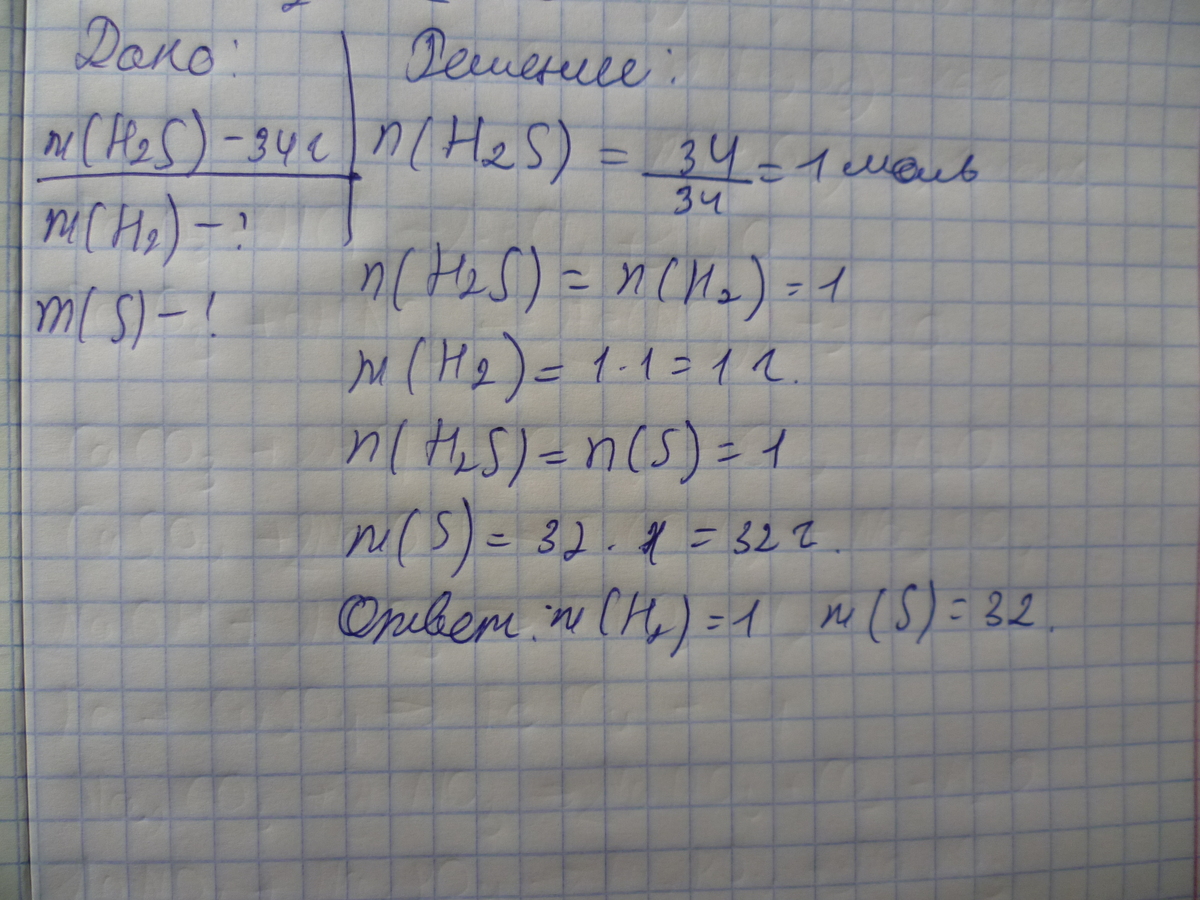 Дано:
m(H2S) - 34г
m(H2) - ?
m(S) - ?
Решение:
n(H2S) = 34/34 = 1 моль
n(H2S) = n(H2) = 1
m(H2) = 1·1 = 1 г.
n(H2S) = n(S) = 1
m(S) = 32 · 1 = 32 г.
Ответ: m(H2) = 1 m(S) = 32.